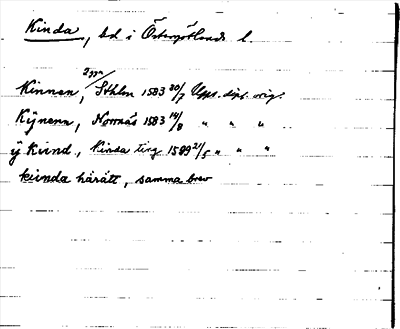 Kinda, hd i Östergötlands l.
2 ggr
Kinnan, Sthlm 1583 30/7 Upps. dipl. orig.
Kÿnenn, Norrnäs 1583 14/8 " " "
ÿ Kiind, Kinda ting 1589 21/5 " " "
kiinda häratt, samma brev